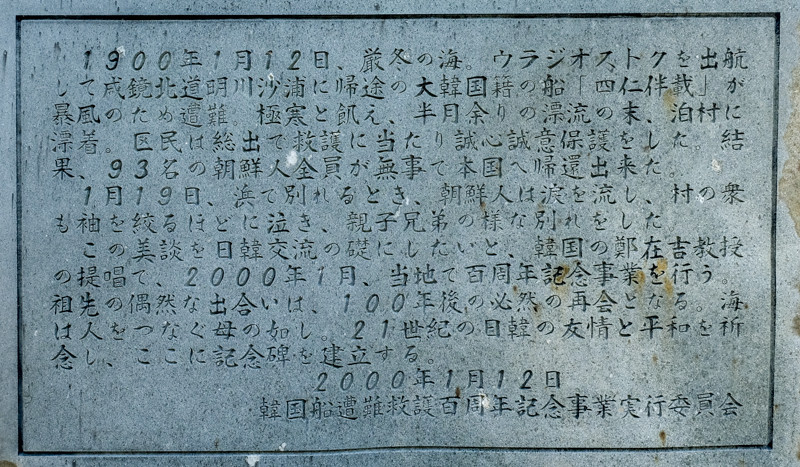 1900年1月12日、厳冬の海。ウラジオストクを出航
して咸鏡北道明川沙浦に帰途の大韓国籍の船「四仁伴載」が
暴風のため遭難。極寒と飢え、半月余りの漂流の末、泊村に
漂着。区民は総出で救護に当たり誠心誠意保護をした。結
果、93名の朝鮮人全員が無事て本国へ帰還出来た。
1月19日、浜て別れるとき、朝鮮人は涙を流し、村の衆
も袖を絞るほどに泣き、親子兄弟の様な別れをした
この美談を日韓交流の礎にしたいと、韓国の鄭在吉教授
の提唱て、2000年1月、当地て百周年記念事業を行う。
祖先の偶然な出合いは、100年後の必然の再会となる。海
は人をつなぐ母の如し。21世紀の日韓の友情と平和を祈
念し、ここに記念碑を建立する。
2000年1月12日
韓国船遭難救護百周年記念事業実行委員会